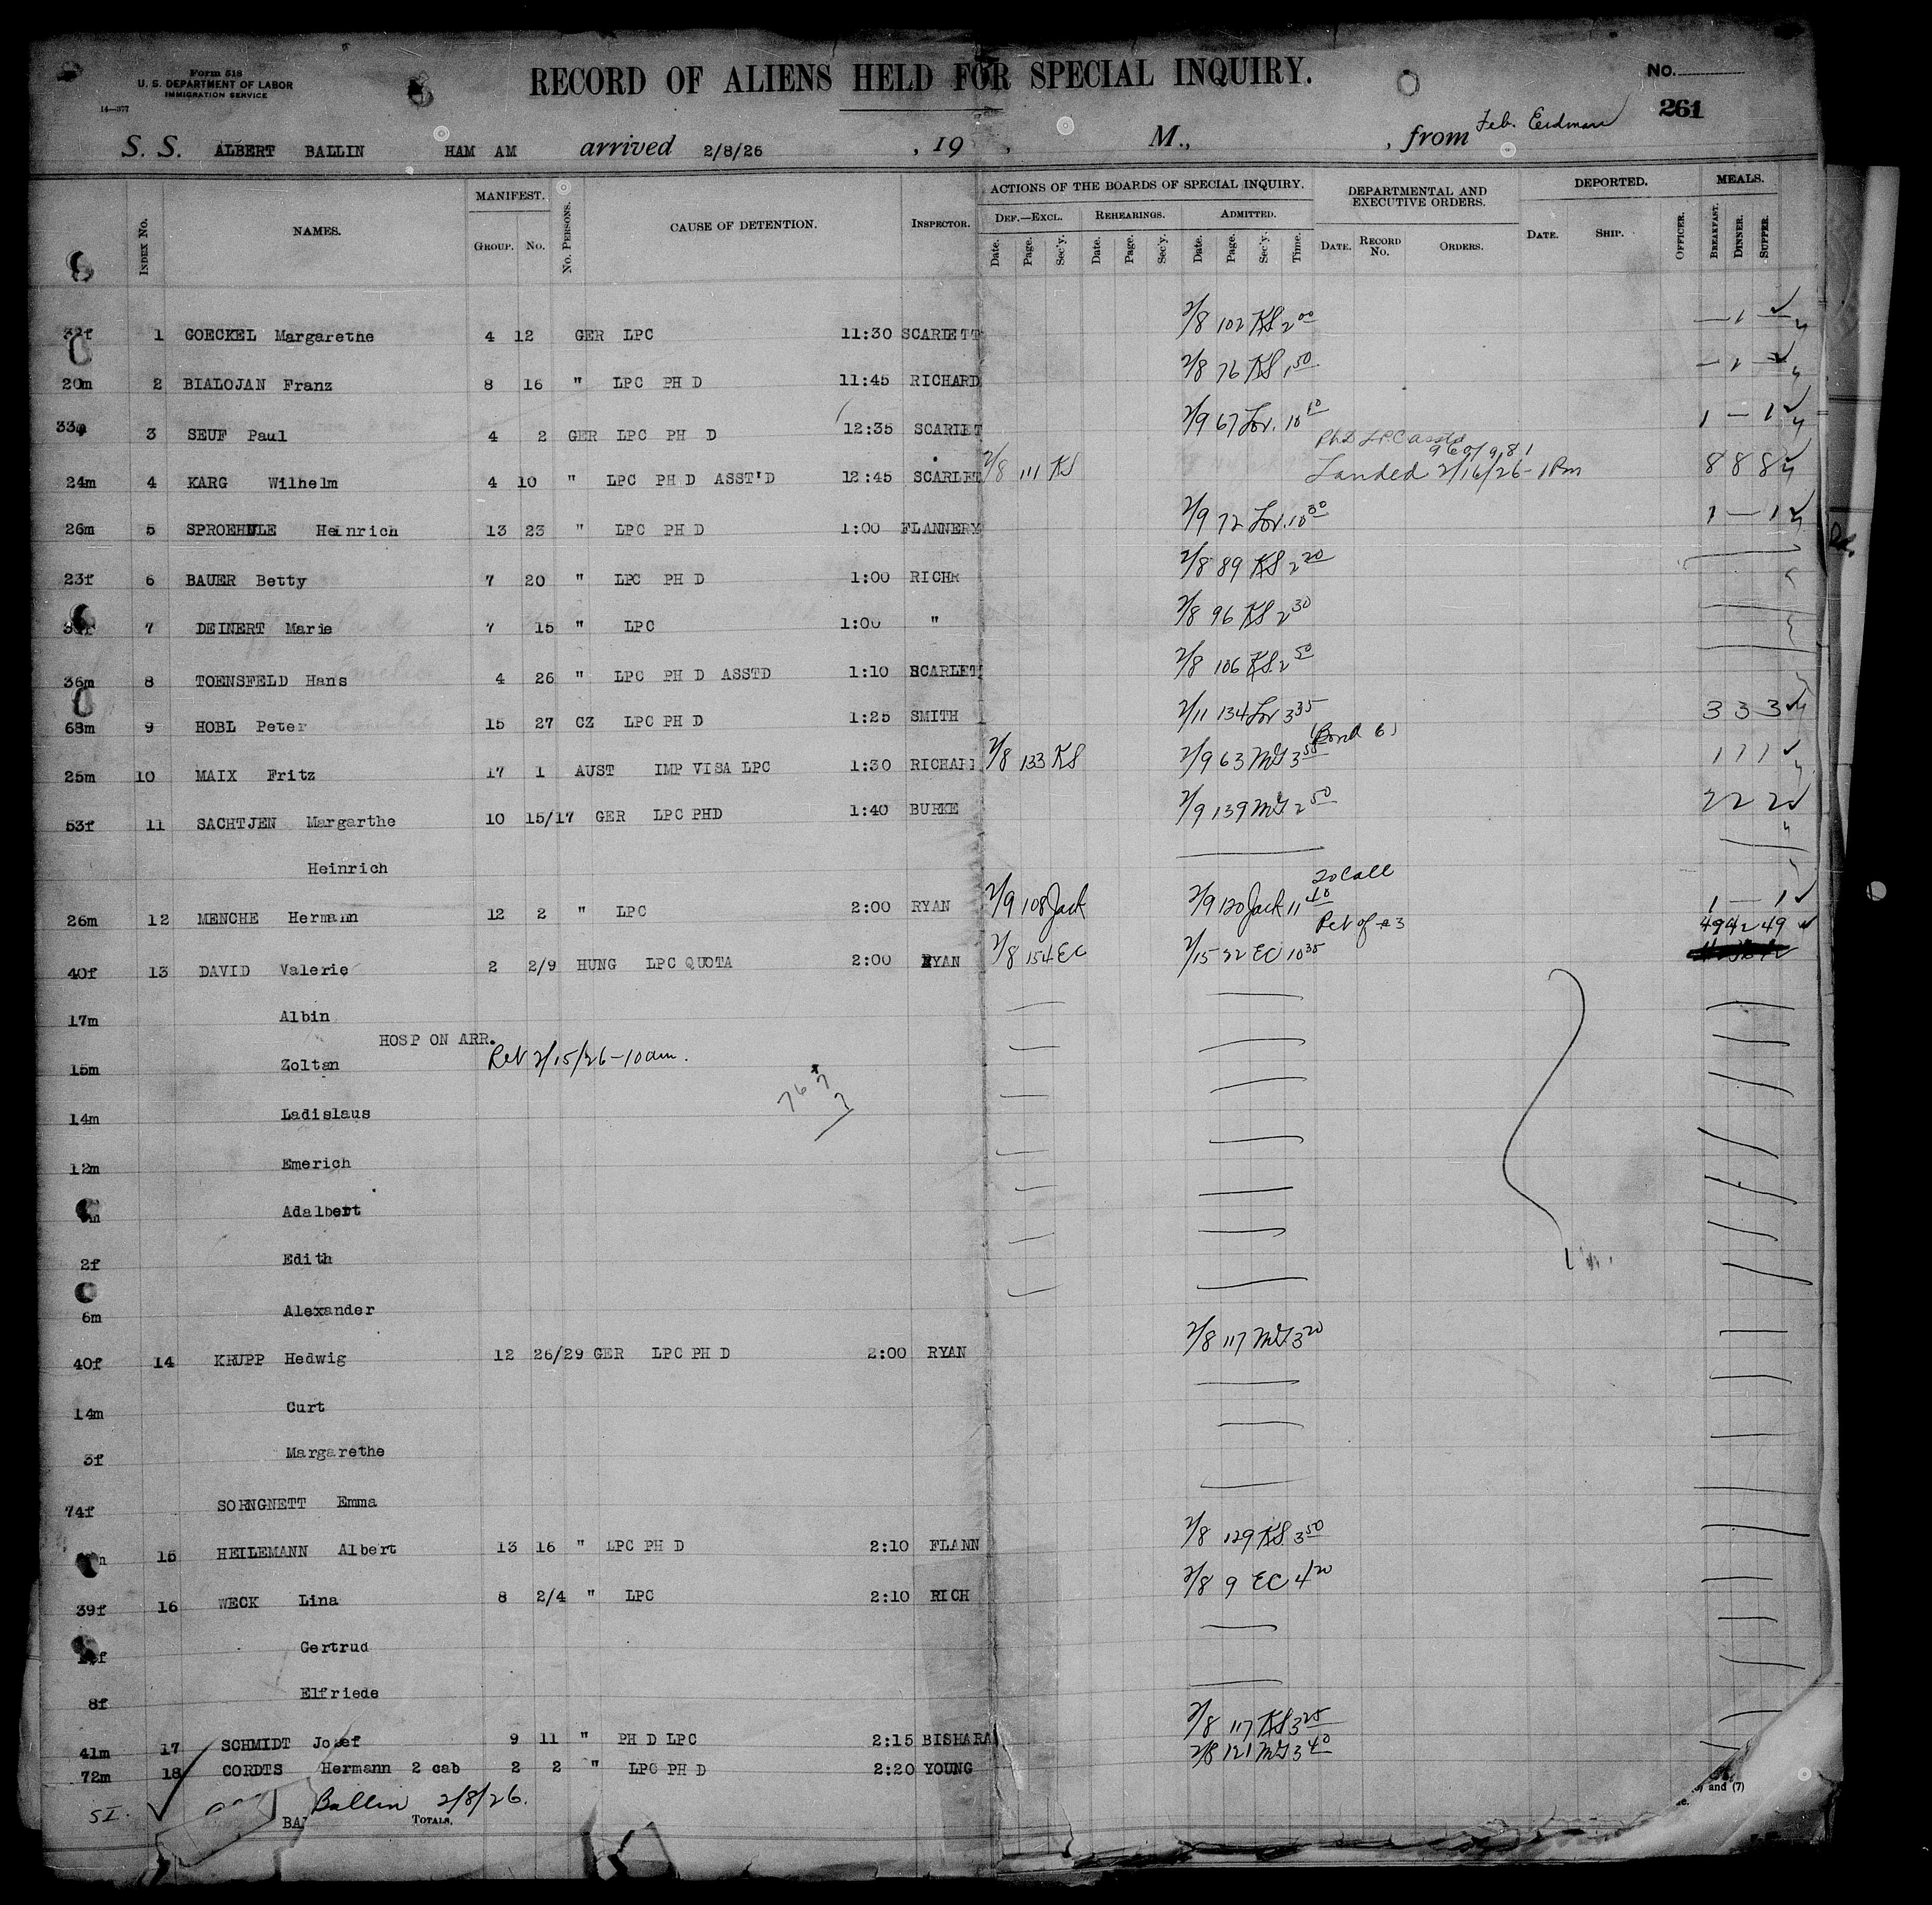 Form 518
U. S. DEPARTMENT OF LABOR
IMMIGRATION SERVICE
14—377
RECORD OF ALIENS HELD FOR SPECIAL INQUIRY.
No.
261
S. S. ALBERT BALLIN HAM AM arrived 2/8/26 , 19 , M., , from Feb. Erdman
INDEX No. NAMES. MANIFEST. GROUP. No. No. PERSONS. CAUSE OF DETENTION. INSPECTOR. ACTIONS OF THE BOARDS OF SPECIAL INQUIRY. DEF.—EXCL. REHEARINGS. ADMITTED. DEPARTMENTAL AND EXECUTIVE ORDERS. DEPORTED. MEALS.
Date. Page. Sec'y. Date. Page. Sec'y. Date. Page. Sec'y. Time. DATE. RECORD No. ORDERS. DATE. SHIP. OFFICER. BREAKFAST. DINNER. SUPPER.
32f 1 GOECKEL Margarethe 4 12 GER LPC 11:30 SCARLETT 2/8 102 KS 2 00 — 1 —
20m 2 BIALOJAN Franz 8 16 " LPC PH D 11:45 RICHARD 2/8 76 KS 1 50 — 1 —
33m 3 SEUF Paul 4 2 GER LPC PH D 12:35 SCARLET 2/9 67 Lov. 10 10 1 — 1
24m 4 KARG Wilhelm 4 10 " LPC PH D ASST'D 12:45 SCARLET 2/8 111 KS Landed 2/16/26 - 1 Pm 8 8 8
26m 5 SPROEHNLE Heinrich 13 23 " LPC PH D 1:00 FLANNERY 2/9 72 Lov. 10 30 1 — 1
23f 6 BAUER Betty 7 20 " LPC PH D 1:00 RICHR 2/8 89 KS 2 20
7 DEINERT Marie 7 15 " LPC 1:00 " 2/8 96 KS 2 30
36m 8 TOENSFELD Hans 4 26 " LPC PH D ASSTD 1:10 SCARLET 2/8 106 KS. 2 50
68m 9 HOBL Peter 15 27 CZ LPC PH D 1:25 SMITH 2/11 134 Lov 3 35 3 3 3
25m 10 MAIX Fritz 17 1 AUST IMP VISA LPC 1:30 RICHARD 2/8 133 KS 2/9 63 McG 3 55 1 1 1
53f 11 SACHTJEN Margarthe 10 15/17 GER LPC PHD 1:40 BURKE 2/9 139 McG 2 50 2 2 2
Heinrich
26m 12 MENCHE Hermann 12 2 " LPC 2:00 RYAN 2/9 108 Jack 2/9 120 Jack 11 40 To Call 1 — 1
Ret of #3
40f 13 DAVID Valerie 2 2/9 HUNG LPC QUOTA 2:00 RYAN 2/8 154 EC 2/15 22 EC 10 35 49 42 49
17m Albin
HOSP ON ARR.
15m Zoltan Ret 2/15/26 - 10 am.
14m Ladislaus
12m Emerich
Adalbert
2f Edith
6m Alexander
40f 14 KRUPP Hedwig 12 26/29 GER LPC PH D 2:00 RYAN 2/8 117 McG. 3 20
14m Curt
3f Margarethe
74f SORNGNETT Emma
15 HEILEMANN Albert 13 16 " LPC PH D 2:10 FLANN 2/8 129 KS. 3 50
39f 16 WECK Lina 8 2/4 " LPC 2:10 RICH 2/8 9 EC 4 20
Gertrud
8f Elfriede
41m 17 SCHMIDT Josef 9 11 " PH D LPC 2:15 BISHARA 2/8 117 KS 3 25
72m 18 CORDTS Hermann 2 cab 2 2 " LPC PH D 2:20 YOUNG 2/8 121 McG 3 40
and (7)
SI. Ballin 2/8/26.
TOTALS,